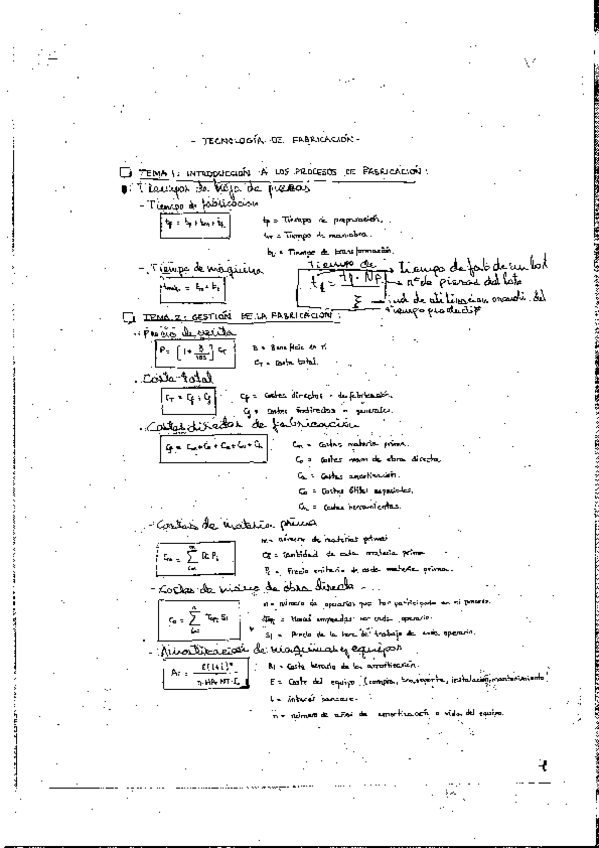 - TECNOLOGÍA DE FABRICACIÓN -
TEMA 1: INTRODUCCIÓN A LOS PROCESOS DE FABRICACIÓN:
Tiempos de hoja de piezas
- Tiempo de fabricación
tf = tp + tm + tt
tp = Tiempo de preparación.
tm = Tiempo de maniobra.
tt = Tiempo de transformación.
- Tiempo de máquina
Tiempo de
Tiempo de fab de un lot
nº de piezas del lote
ind. de utilizacion del
tiempo productif
TEMA 2: GESTIÓN DE LA FABRICACIÓN:
- Precio de venta
P = [1 + B/100] CT
B = Beneficio en %.
CT = Coste total.
- Coste total
CT = Cf + Cg
Cf = Costes directos o de fabricación.
Cg = Costes indirectos o generales.
- Costes directos de fabricación
Cm = Costes materia prima.
Co = Costes mano de obra directa
Ca = Costes amortización.
Costes útiles especiales.
Costes herramientas.
- Costes de materia prima
m = número de materias primas
cantidad de cada materia prima
Precio unitario de cada materia prima.
- Costes de mano de obra directa
n = número de operarios que han participado en mi proceso.
Horas empleadas por cada operario.
Precio de la hora de trabajo de cada operario.
- Amortización de maquinas y equipos
Coste horario de la amortización.
E = Coste del equipo (compra, transporte, instalación, mantenimiento
i = interés bancario.
n = número de años de amortización o vida del equipo.